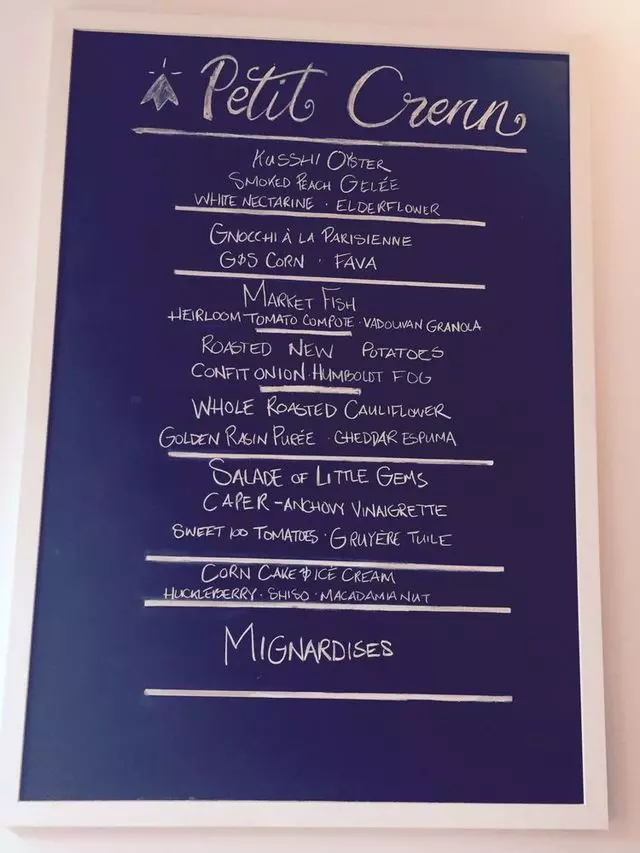 Petit Crenn
KUSSHI OYSTER
SMOKED PEACH GELÉE
WHITE NECTARINE · ELDERFLOWER
GNOCCHI À LA PARISIENNE
G&S CORN · FAVA
MARKET FISH
HEIRLOOM TOMATO COMPOTE · VADOUVAN GRANOLA
ROASTED NEW POTATOES
CONFIT ONION · HUMBOLDT FOG
WHOLE ROASTED CAULIFLOWER
GOLDEN RASIN PURÉE · CHEDDAR ESPUMA
SALADE OF LITTLE GEMS
CAPER-ANCHOVY VINAIGRETTE
SWEET 100 TOMATOES · GRUYÈRE TUILE
CORN CAKE & ICE CREAM
HUCKLEBERRY · SHISO · MACADAMIA NUT
MIGNARDISES